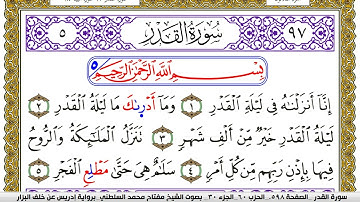 ٥ سُورَةُ الْقَدْرِ ٩٧
٥ بِسْمِ اللَّهِ الرَّحْمَٰنِ الرَّحِيمِ
إِنَّا أَنزَلْنَٰهُ فِي لَيْلَةِ الْقَدْرِ ١ وَمَا أَدْرِىٰكَ مَا لَيْلَةُ الْقَدْرِ ٢
لَيْلَةُ الْقَدْرِ خَيْرٌ مِّنْ أَلْفِ شَهْرٍ ٣ تَنَزَّلُ الْمَلَٰٓئِكَةُ وَالرُّوحُ
فِيهَا بِإِذْنِ رَبِّهِم مِّن كُلِّ أَمْرٍ ٤ سَلَٰمٌ هِيَ حَتَّىٰ مَطْلِعِ الْفَجْرِ ٥
سورة القدر _الصفحة ٥٩٨_ الحزب ٦٠_ الجزء ٣٠_ بصوت الشيخ مفتاح محمد السلطني_ برواية إدريس عن خلف البزار